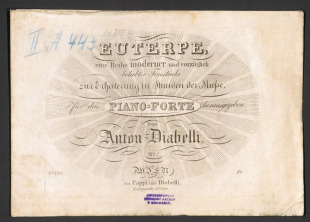 II A 445
EUTERPE,
eine Reihe moderner und vorzüglich
beliebter Tonstücke
zur Erheiterung in Stunden der Muse.
für das PIANO-FORTE herausgegeben
von
Anton Diabelli.
No.
WIEN
bey Cappi und Diabelli,